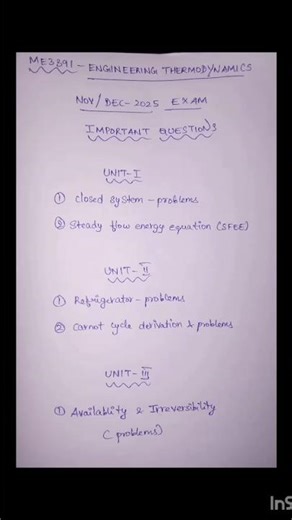 ME3391 - ENGINEERING THERMODYNAMICS
NOV/DEC-2025 EXAM
IMPORTANT QUESTIONS
UNIT-I
① closed system - problems
② Steady flow energy equation (SFEE)
UNIT-II
① Refrigerator - problems
② Carnot cycle derivation & problems
UNIT-III
① Availablity & Irreversibility
(problems)
InS